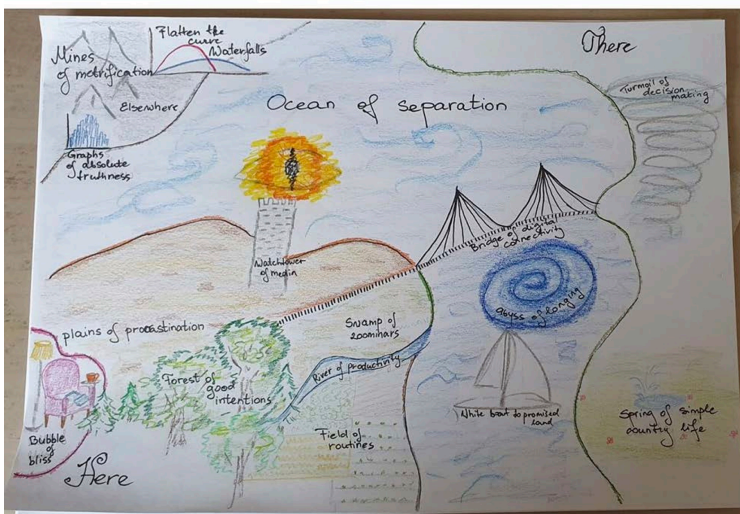 Mines
of motrification
Flatten the
curve
Waterfalls
Elsewhere
Graphs
of absolute
truthiness
There
Turmoil of
decision
making
Ocean of separation
Watchtower
of media
Bridge of digital
connectivity
abyss of longing
plains of procrastination
Swamp of
zoominars
River of productivity
Forest of
good
intentions
Bubble
of
bliss
Field of
routines
White boat to promised
land
Spring of simple
country life
Here